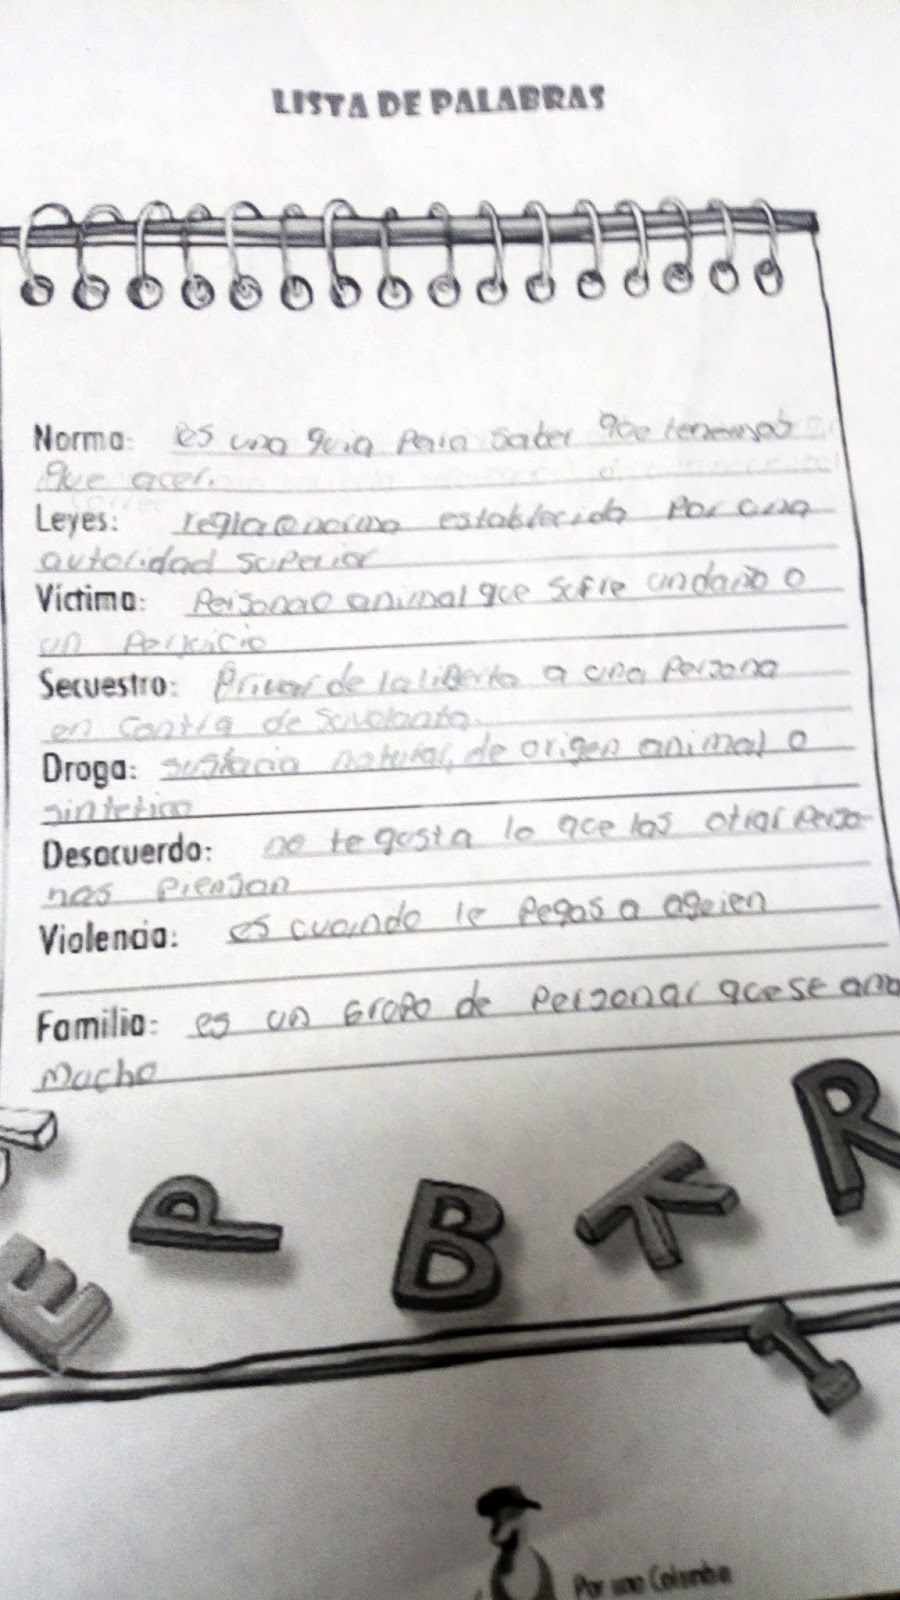 LISTA DE PALABRAS
Norma: es una guia para saber que tenemos
que acer.
Leyes: regla o norma establecida por una
autoridad superior
Víctima: Persona o animal que sufre un daño o
un perjucio
Secuestro: Privar de la liberta a una persona
en contra de su volunta.
Droga: sustacia natural, de origen animal o
sintetico
Desacuerdo: no te gusta lo que las otras perso-
nas piensan
Violencia: es cuando le pegas a
Familia: es un Gropo de personas que se ama
Mucho
E P B K R
I
Por una Colombia